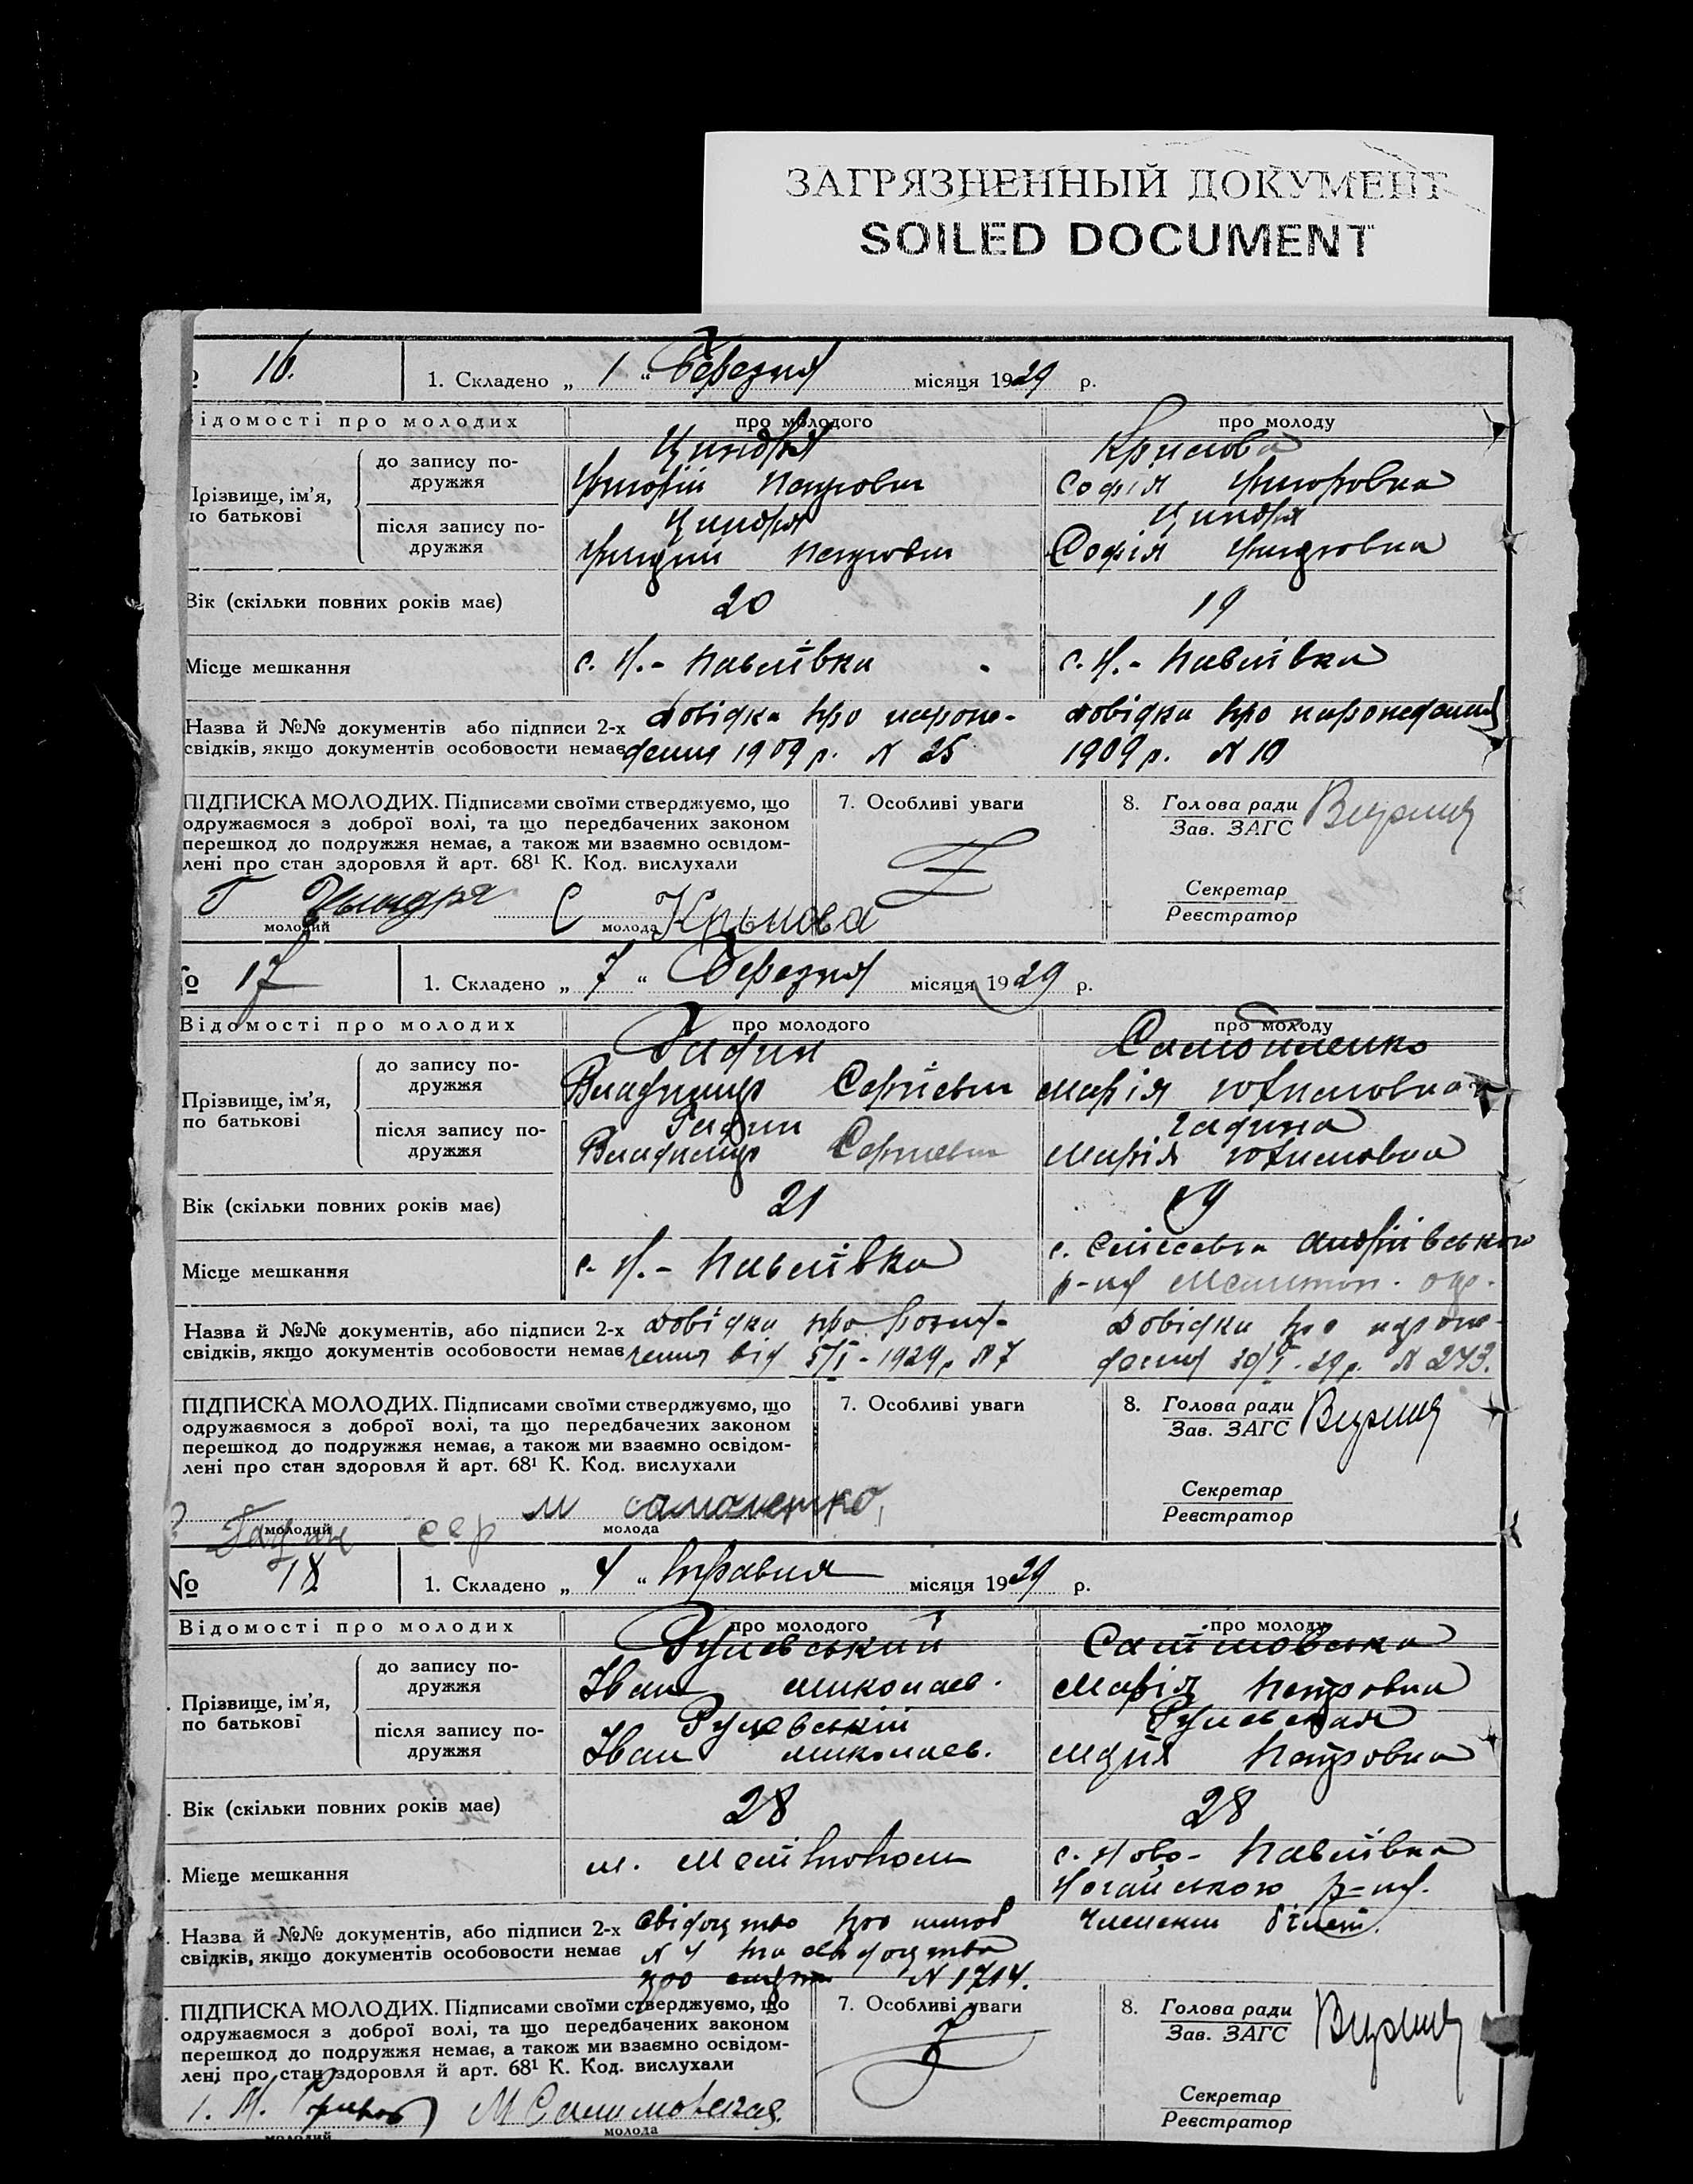 ЗАГРЯЗНЕННЫЙ ДОКУМЕНТ
SOILED DOCUMENT
16. 1. Складено „ 1 “ Березня місяця 1929 р.
ідомості про молодих про молодого про молоду
Прізвище, ім’я, по батькові
до запису подружжя
Циндря
Григорій Петрович
Крилова
Софія Григоровна
після запису подружжя
Циндря
Григорій Петрович
Циндря
Софія Григоровна
Вік (скільки повних років має) 20 19
Місце мешкання с. Н.- Павлівка с. Н.- Павлівка
Назва й №№ документів або підписи 2-х
свідків, якщо документів особовости немає
Довідка про народження 1909 р. N 25
Довідка про народження
1909 р. N 10
ПІДПИСКА МОЛОДИХ. Підписами своїми стверджуємо, що
одружаємося з доброї волі, та що передбачених законом
перешкод до подружжя немає, а також ми взаємно освідом-
лені про стан здоровля й арт. 68¹ К. Код. вислухали
7. Особливі уваги
8. Голова ради
Зав. ЗАГС
Секретар
Реєстратор
Г Цындря С Крылова
молодий молода
№ 17 1. Складено „ 7 “ Березня місяця 1929 р.
Відомості про молодих про молодого про молоду
Прізвище, ім’я, по батькові
до запису подружжя
Гадин
Владимир Сергієвич
Самойленко
Марія
після запису подружжя
Гадин
Владимир Сергиевич
Гадина
Марія
Вік (скільки повних років має) 21 19
Місце мешкання с. Н.- Павлівка
с. Андріївського
р-на Мелитоп. окр.
Назва й №№ документів, або підписи 2-х
свідків, якщо документів особовости немає
Довідка про
від 5/I - 1929 р. N 7
Довідка про народження 30/I - 29 р. N 273.
ПІДПИСКА МОЛОДИХ. Підписами своїми стверджуємо, що
одружаємося з доброї волі, та що передбачених законом
перешкод до подружжя немає, а також ми взаємно освідом-
лені про стан здоровля й арт. 68¹ К. Код. вислухали
7. Особливі уваги
8. Голова ради
Зав. ЗАГС
Секретар
Реєстратор
Гадин сер М самоленко
молодий молода
№ 18 1. Складено „ 4 “ травня місяця 1929 р.
Відомості про молодих про молодого про молоду
Прізвище, ім’я, по батькові
до запису подружжя
Іван Миколаев.
Марія Петровна
після запису подружжя
Іван Миколаев.
Марія Петровна
Вік (скільки повних років має) 28 28
Місце мешкання м. Мелітополь
с. Ново- Павлівка
Ногайського р-на.
Назва й №№ документів, або підписи 2-х
свідків, якщо документів особовости немає
свідоцтво про шлюб
N 4 та свідоцтво
про смерть N 1714.
Членский білет.
ПІДПИСКА МОЛОДИХ. Підписами своїми стверджуємо, що
одружаємося з доброї волі, та що передбачених законом
перешкод до подружжя немає, а також ми взаємно освідом-
лені про стан здоровля й арт. 68¹ К. Код. вислухали
7. Особливі уваги
8. Голова ради
Зав. ЗАГС
Секретар
Реєстратор
молодий молода